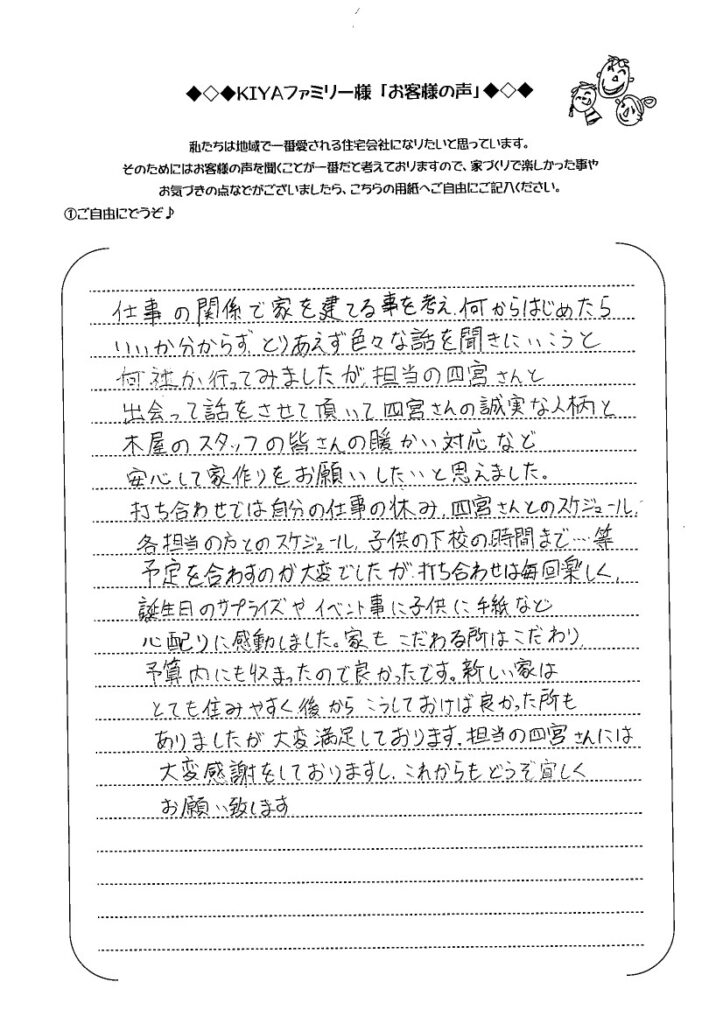 ◆◇◆KIYAファミリー様「お客様の声」◆◇◆
私たちは地域で一番愛される住宅会社になりたいと思っています。
そのためにはお客様の声を聞くことが一番だと考えておりますので、家づくりで楽しかった事や
お気づきの点などがございましたら、こちらの用紙へご自由にご記入ください。
①ご自由にどうぞ♪
仕事の関係で家を建てる事を考え、何からはじめたら
いいか分からず、とりあえず色々な話を聞きにいこうと
何社か行ってみましたが、担当の四宮さんと
出会って話をさせて頂いて、四宮さんの誠実な人柄と
木屋のスタッフの皆さんの暖かい対応など
安心して家作りをお願いしたいと思えました。
打ち合わせでは自分の仕事の休み、四宮さんとのスケジュール、
各担当の方とのスケジュール、子供の下校の時間まで…等
予定を合わすのが大変でしたが、打ち合わせは毎回楽しく、
誕生日のサプライズやイベント事に子供に手紙など
心配りに感動しました。家もこだわる所はこだわり、
予算内にも収まったので良かったです。新しい家は
とても住みやすく後からこうしておけば良かった所も
ありましたが大変満足しております。担当の四宮さんには
大変感謝をしておりますし、これからもどうぞ宜しく
お願い致します